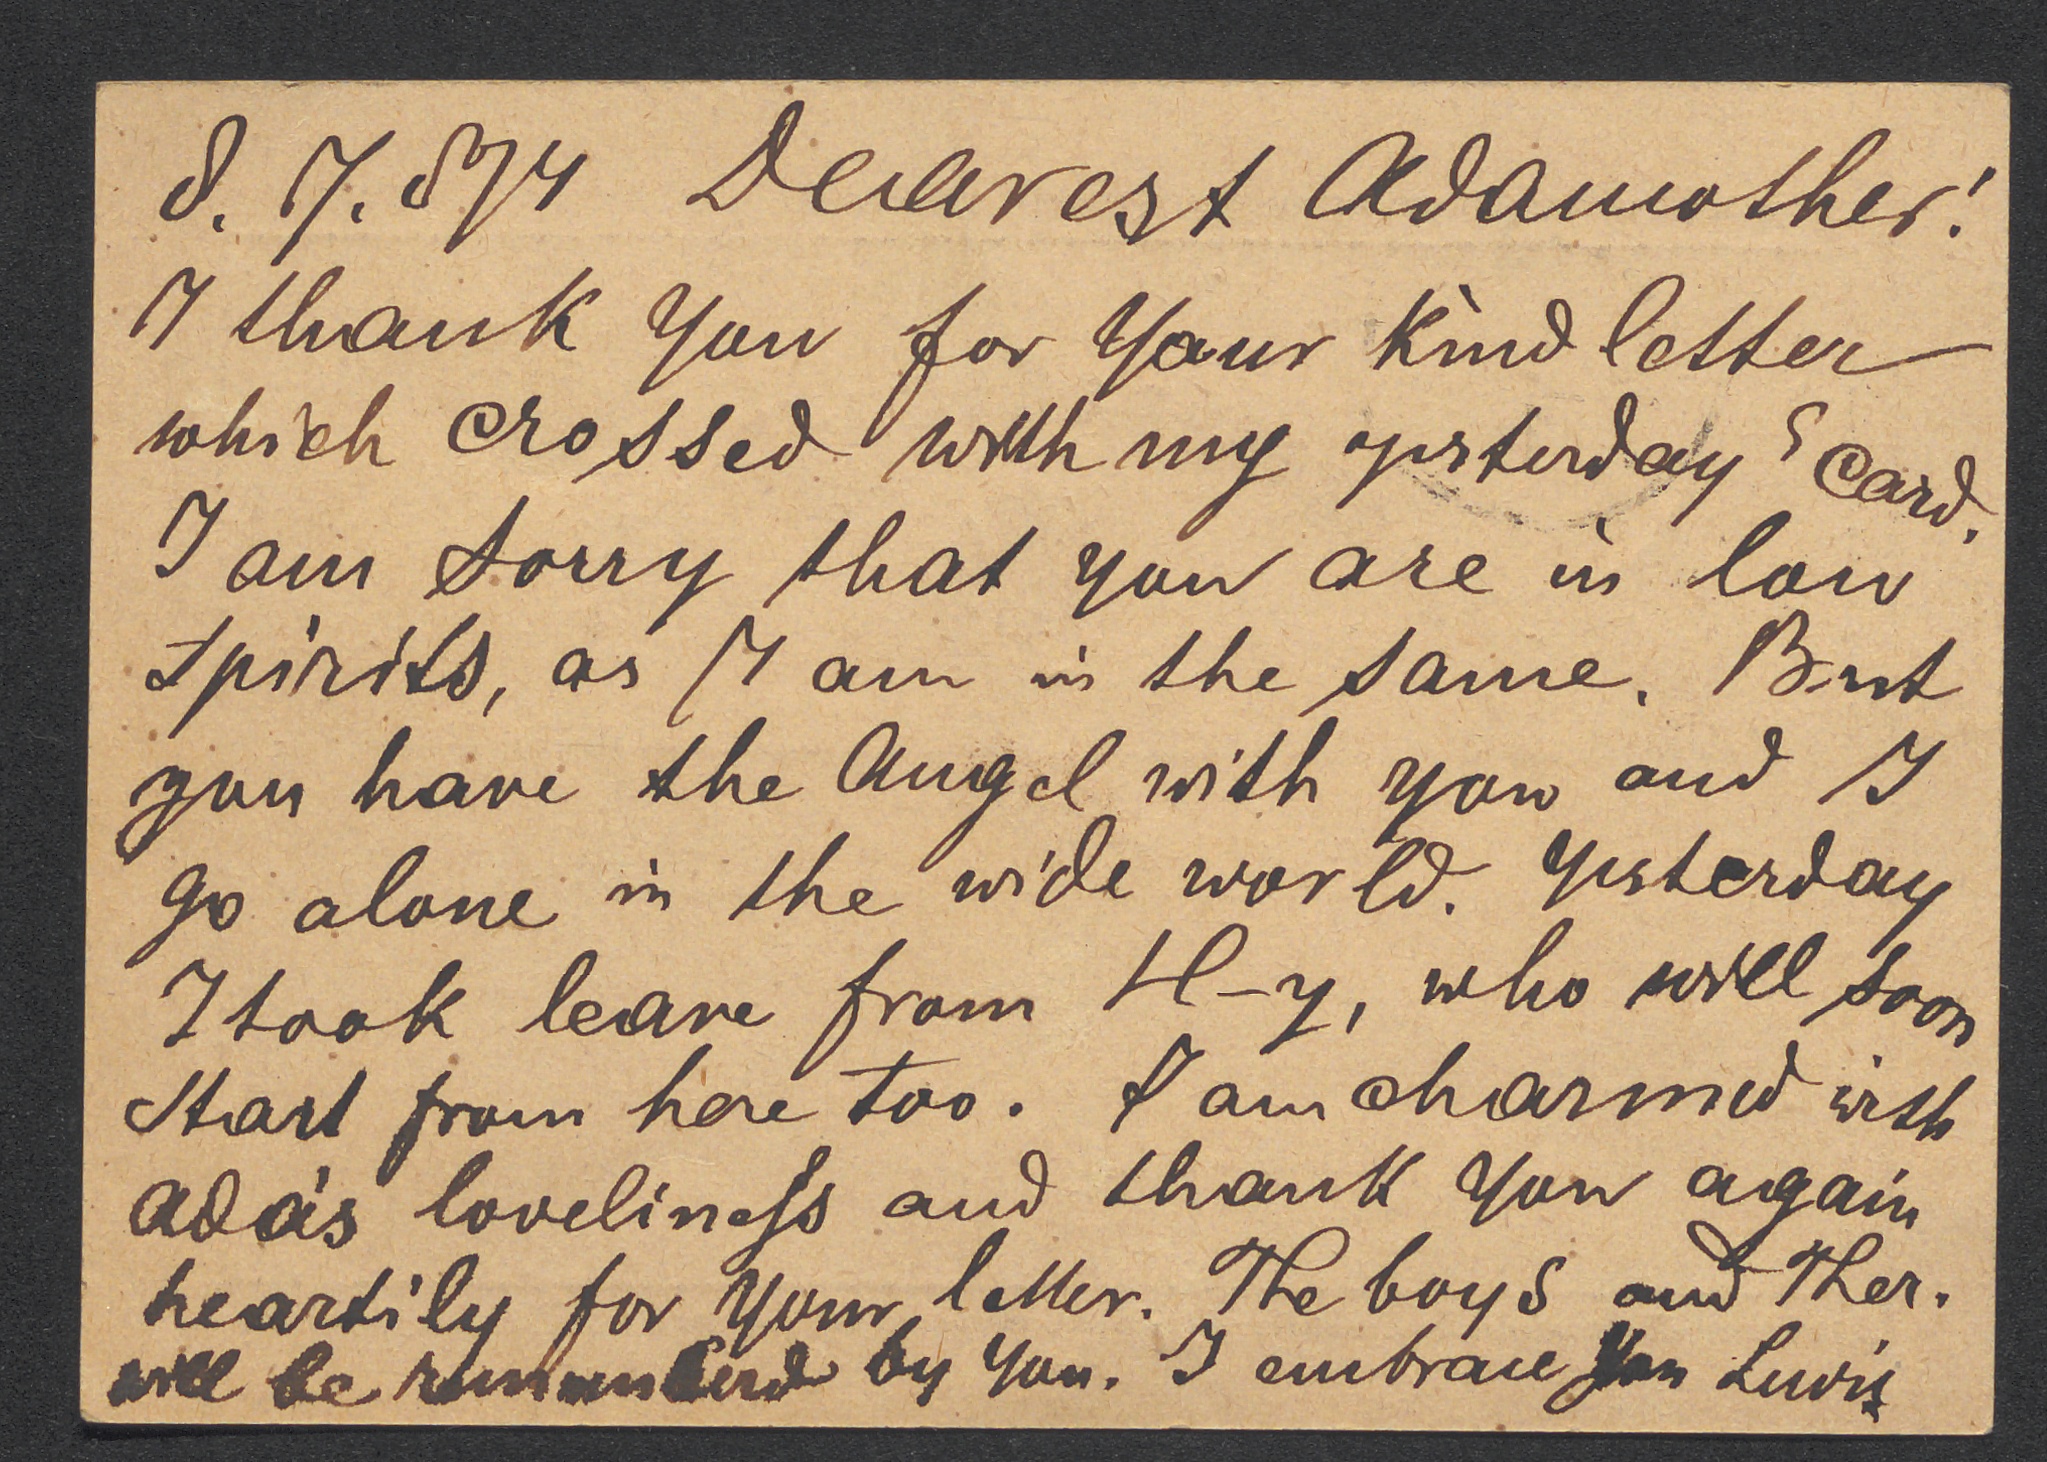 8. 7. 874 Dearest Adamother!
I thank you for your kind letter
which crossed with my yesterday's card.
I am sorry that you are in low
spirits, as I am in the same. But
you have the Angel with you and I
go alone in the wide world. Yesterday
I took leave from H-y, who will soon
start from here too. I am charmed with
Ada's loveliness and thank you again
heartily for your letter. The boys and Ther.
will be remembered by you. I embrace you Luvis